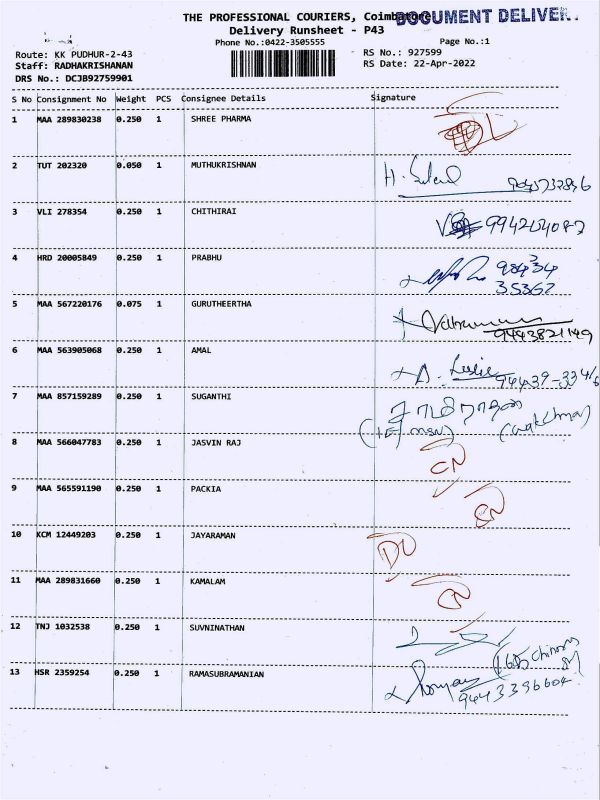 THE PROFESSIONAL COURIERS, Coimbatore
DOCUMENT DELIVER
Delivery Runsheet - P43
Phone No.:0422-3505555
Page No.:1
Route: KK PUDHUR-2-43
RS No.: 927599
Staff: RADHAKRISHANAN
RS Date: 22-Apr-2022
DRS No.: DCJB92759901
S No Consignment No Weight PCS Consignee Details Signature
1 MAA 289830238 0.250 1 SHREE PHARMA
2 TUT 202320 0.050 1 MUTHUKRISHNAN
3 VLI 278354 0.250 1 CHITHIRAI
4 HRD 20005849 0.250 1 PRABHU 98434
35362
5 MAA 567220176 0.075 1 GURUTHEERTHA
9443821149
6 MAA 563905068 0.250 1 AMAL A. Leslie
94439-33416
7 MAA 857159289 0.250 1 SUGANTHI
8 MAA 566047783 0.250 1 JASVIN RAJ CN
9 MAA 565591190 0.250 1 PACKIA
10 KCM 12449203 0.250 1 JAYARAMAN DL
11 MAA 289831660 0.250 1 KAMALAM CN
12 TNJ 1032538 0.250 1 SUVNINATHAN
13 HSR 2359254 0.250 1 RAMASUBRAMANIAN
9443396604